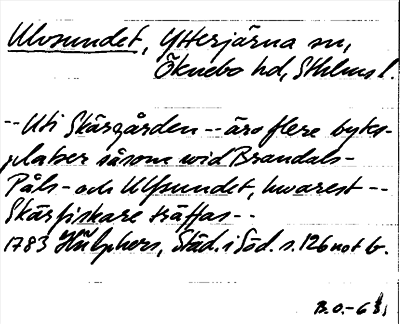 Ulvsundet, Ytterjärna sn,
Öknebo hd, Sthlms l.
-- Uti Skärgården -- äro flere bytes-
platser såsom wid Brandals-
Påls- och Ulfsundet, hwarest --
Skärfiskare träffas --
1783 Hülphers, Städ. i Söd. s. 126 not b.
B.O. -